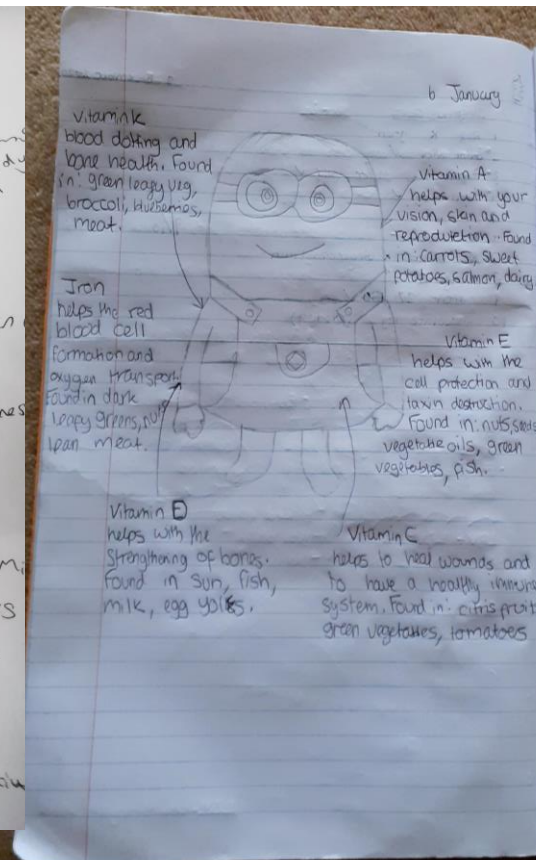 6 January
Vitamin K
blood dotting and
bone health. Found
in: green leagy veg,
broccoli, bluberries,
meat.
Vitamin A
helps with your
vision, skin and
reproduction. Found
in: carrots, sweet
potatoes, salmon, dairy
Iron
helps the red
blood cell
formation and
oxygen transport
Found in dark
leapy greens, nuts
lean meat.
Vitamin E
helps with the
cell protection and
taxin destruction.
Found in: nuts, seeds
vegetable oils, green
vegetables, fish.
Vitamin D
helps with the
Strengthening of bones.
Found in sun, fish,
milk, egg yolks.
Vitamin C
helps to heal wounds and
to have a healthy immune
system. Found in: citris fruit
green vegetables, tomatoes